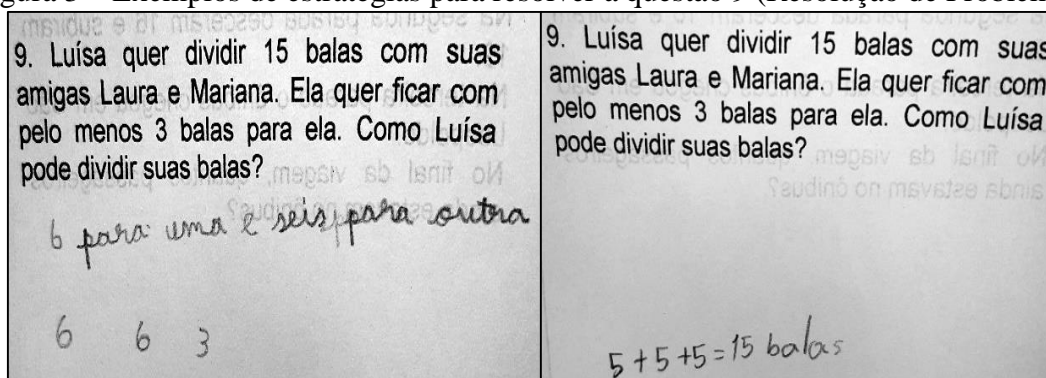 Exemplos de estratégias para resolver a questão 9 (Resolução de Problem
9. Luísa quer dividir 15 balas com suas
amigas Laura e Mariana. Ela quer ficar com
pelo menos 3 balas para ela. Como Luísa
pode dividir suas balas?
6 para uma e seis para outra
6 6 3
9. Luísa quer dividir 15 balas com suas
amigas Laura e Mariana. Ela quer ficar com
pelo menos 3 balas para ela. Como Luísa
pode dividir suas balas?
5+5+5=15 balas